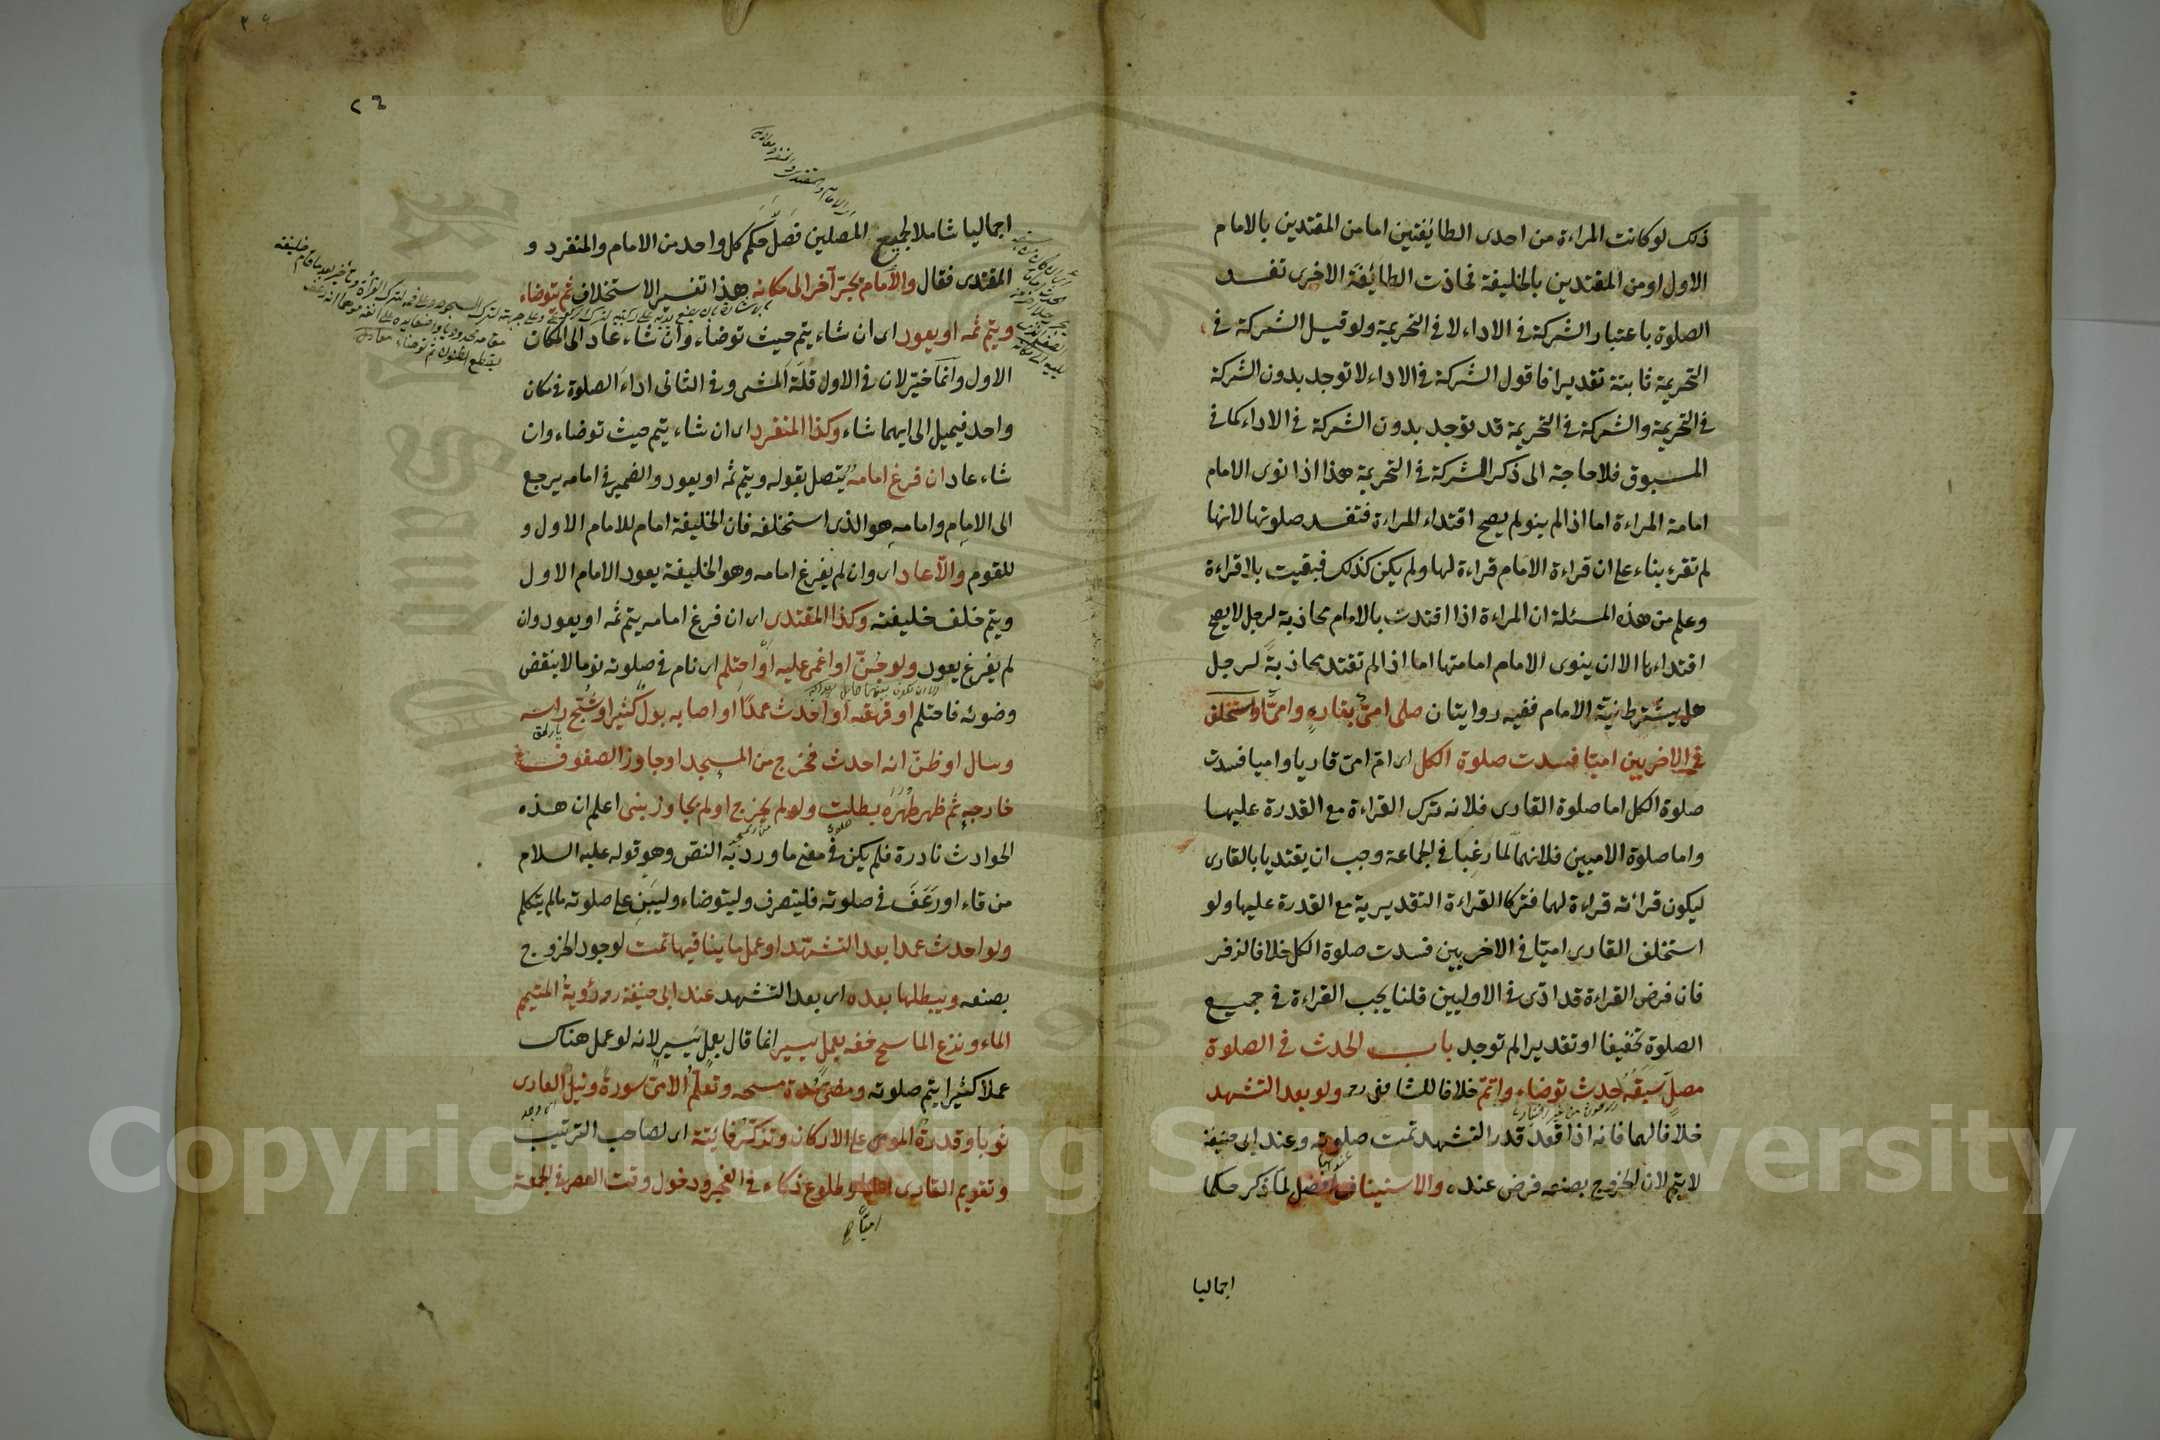 ذلك لو كانت المراءة من احدى الطائفتين اما من المقتدين بالامام
الاول او من المقتدين بالخليفة فحاذت الطائفة الاخرى تفسد
الصلوة باعتبار الشركة في الاداء لا في التحريمة ولو قيل الشركة في
التحريمة ثابتة تقديرا فاقول الشركة في الاداء لا توجد بدون الشركة
في التحريمة والشركة في التحريمة قد توجد بدون الشركة في الاداء كما في
المسبوق فلا حاجة الى ذكر الشركة في التحريمة هذا اذا نوى الامام
امامة المراءة اما اذا لم ينو لم يصح اقتداء المراءة فتفسد صلوتها لانها
لم تقرء بناء على ان قراءة الامام قراءة لها ولم يكن كذلك فبقيت بلا قراءة
وعلم من هذه المسئلة ان المراءة اذا اقتدت بالامام محاذية لرجل لا يصح
اقتداءها الا ان ينوى الامام امامتها اما اذا لم تقتد محاذية لرجل
هل يشترط نية الامام ففيه روايتان صلى امىّ بقارءٍ وامىّ او استخلف
في الاخريين اميّا فسدت صلوة الكل اى امّ امىّ قاريا واميا فسدت
صلوة الكل اما صلوة القارى فلانه ترك القراءة مع القدرة عليها
واما صلوة الاميين فلانهما لمّا رغبا في الجماعة وجب ان يقتديا بالقارى
ليكون قرائته قراءة لهما فتركا القراءة التقديرية مع القدرة عليها ولو
استخلف القارى اميّا في الاخريين فسدت صلوة الكل خلافا لزفر
فان فرض القراءة قد ادّى في الاوليين قلنا يجب القراءة في جميع
الصلوة تحقيقا او تقديرا لم توجد باب الحدث في الصلوة
مصلّ سبقه حدث توضاء واتمّ خلافا للشافعى رح ولو بعد التشهد
خلافا لهما فانه اذا قعد قدر التشهد تمت صلوته وعند ابى حنيفة
لا يتم لان الخروج بصنعه فرض عنده والاستيناف افضل لمّا ذكر حكما
اجماليا
٢٦
اجماليا شاملا لجميع المصلين فصّل حكم كل واحد من الامام والمنفرد و
المقتدى فقال والامام يجرّ آخر الى مكانه هذا تفسير الاستخلاف ثم يتوضاء
ويتم ثمه او يعود اى ان شاء يتم حيث توضاء وان شاء عاد الى المكان
الاول وانما خيّر لان في الاول قلّة المشى وفي الثانى اداء الصلوة في مكان
واحد فيميل الى ايهما شاء وكذا المنفرد اى ان شاء يتم حيث توضاء وان
شاء عاد ان فرغ امامه يتصل بقوله ويتم ثمه او يعود والضمير في امامه يرجع
الى الامام وامامه هو الذى استخلفه فان الخليفة امام للامام الاول و
للقوم والّا عاد اى وان لم يفرغ امامه وهو الخليفة يعود الامام الاول
ويتم خلف خليفته وكذا المقتدى اى ان فرغ امامه يتم ثمه او يعود وان
لم يفرغ يعود ولو جنّ او اغمى عليه او احتلم اى نام في صلوته نوما لا ينقض
وضوئه فاحتلم او قهقه او احدث عمدًا او اصابه بول كثير او شجّ راسه
وسال او ظنّ انه احدث فخرج من المسجد او جاوز الصفوف
خارجه ثم ظهر طهره بطلت ولو لم يخرج او لم يجاوز بنى اعلم ان هذه
الحوادث نادرة فلم يكن في معنى ما ورد به النصّ وهو قوله عليه السلام
من قاء او رعف في صلوته فلينصرف وليتوضاء وليبن على صلوته مالم يتكلم
ولو احدث عمدا بعد التشهّد او عمل ما ينافيها تمت لوجود الخروج
بصنعه ويبطلها بعده اى بعد التشهد عند ابى حنيفة رح رؤية المتيمم
الماء ونزع الماسح خفه بعمل يسير انما قال بعمل يسير لانه لو عمل هناك
عملا كثيرا يتم صلوته ومضىّ مدة مسحه وتعلّم الامىّ سورة ونيل العارى
ثوبا وقدرة المومى على الاركان وتذكّر فائتة اى لصاحب الترتيب
وتقديم القارى وطلوع ذكاء في الفجر ودخول وقت العصر في الجمعة
اميّا صح
Copyright © King Saud University